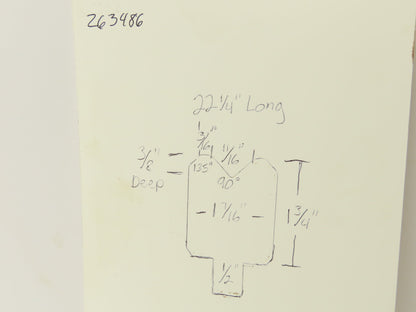 263486
22 1/4" Long
1 3/16" 11/16"
3/8"
Deep
135°
90°
1 7/16"
1 3/4"
1/2"